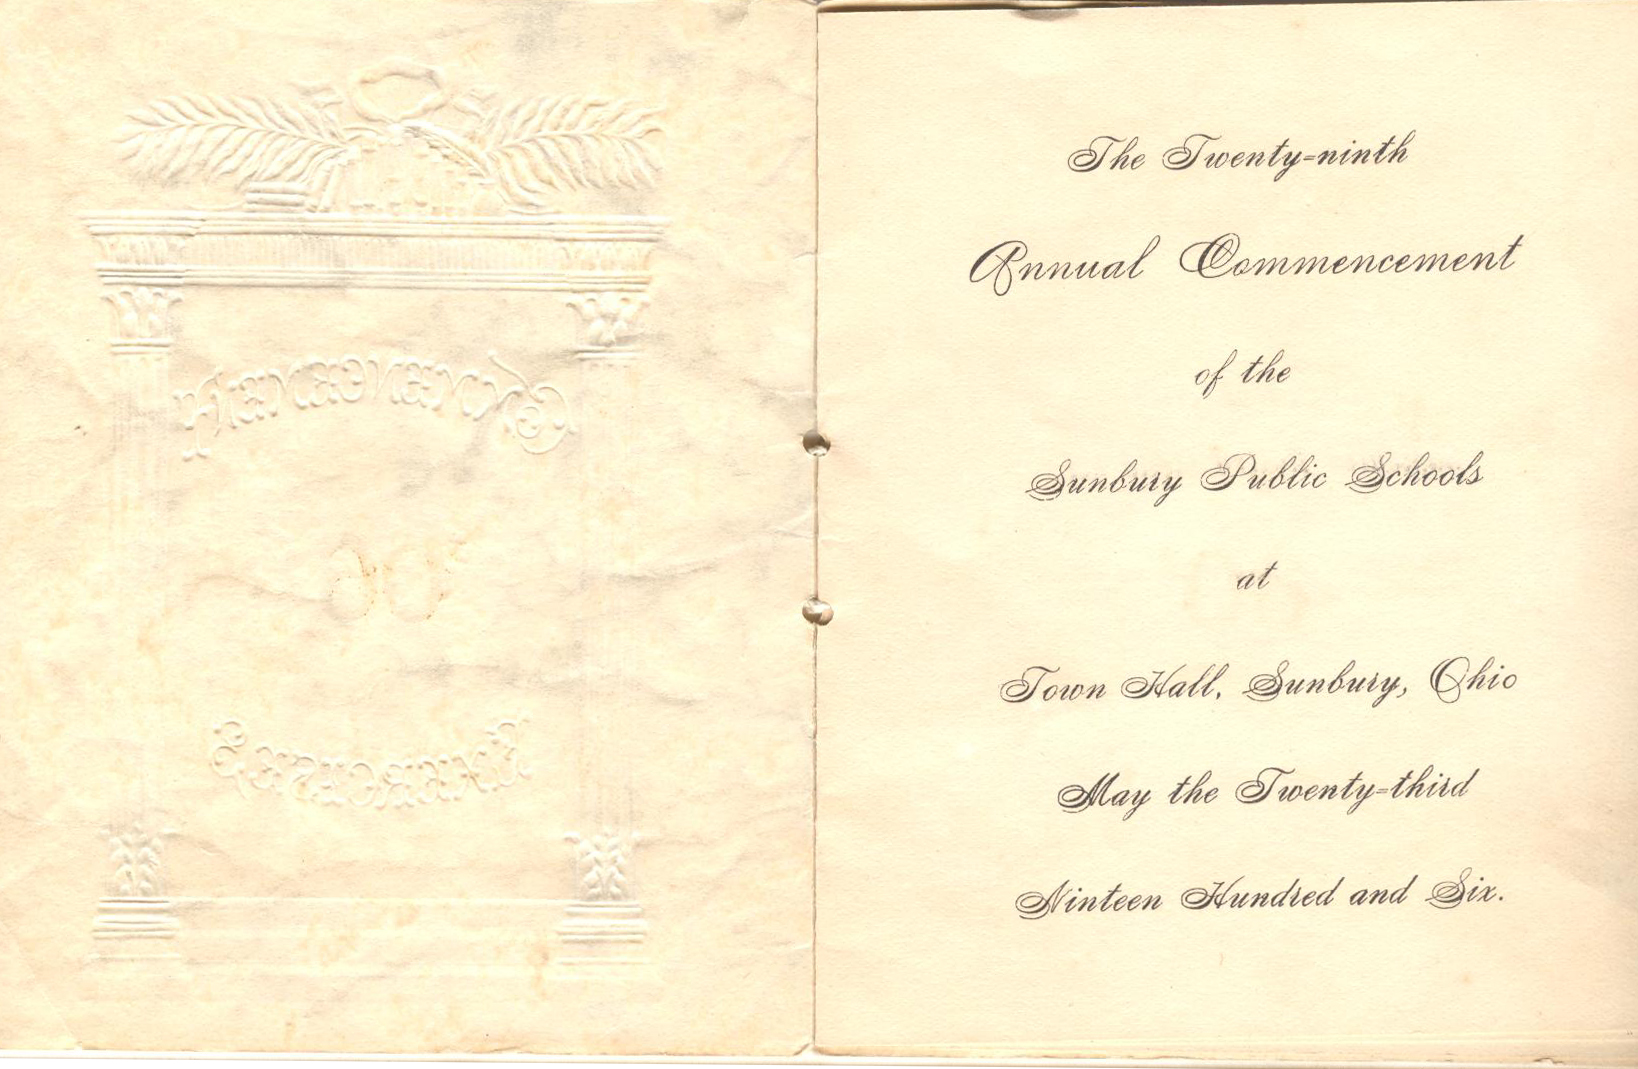 Commencement
'06
Exercises
The Twenty-ninth
Annual Commencement
of the
Sunbury Public Schools
at
Town Hall, Sunbury, Ohio
May the Twenty-third
Nineteen Hundred and Six.